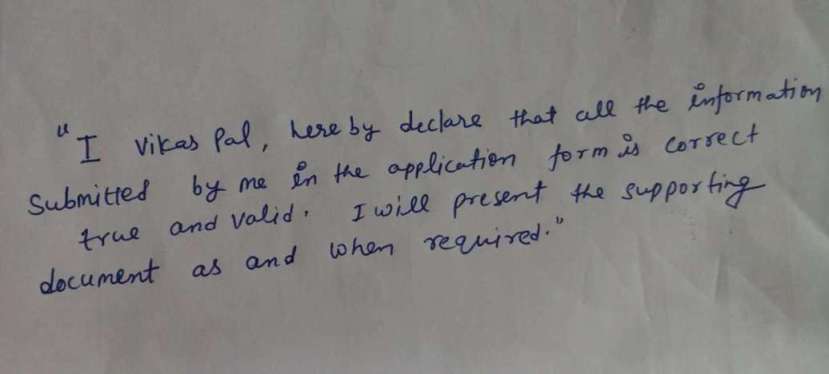 "I Vikas Pal, here by declare that all the information
Submitted by me in the application form is correct
true and valid. I will present the supporting
document as and when required."